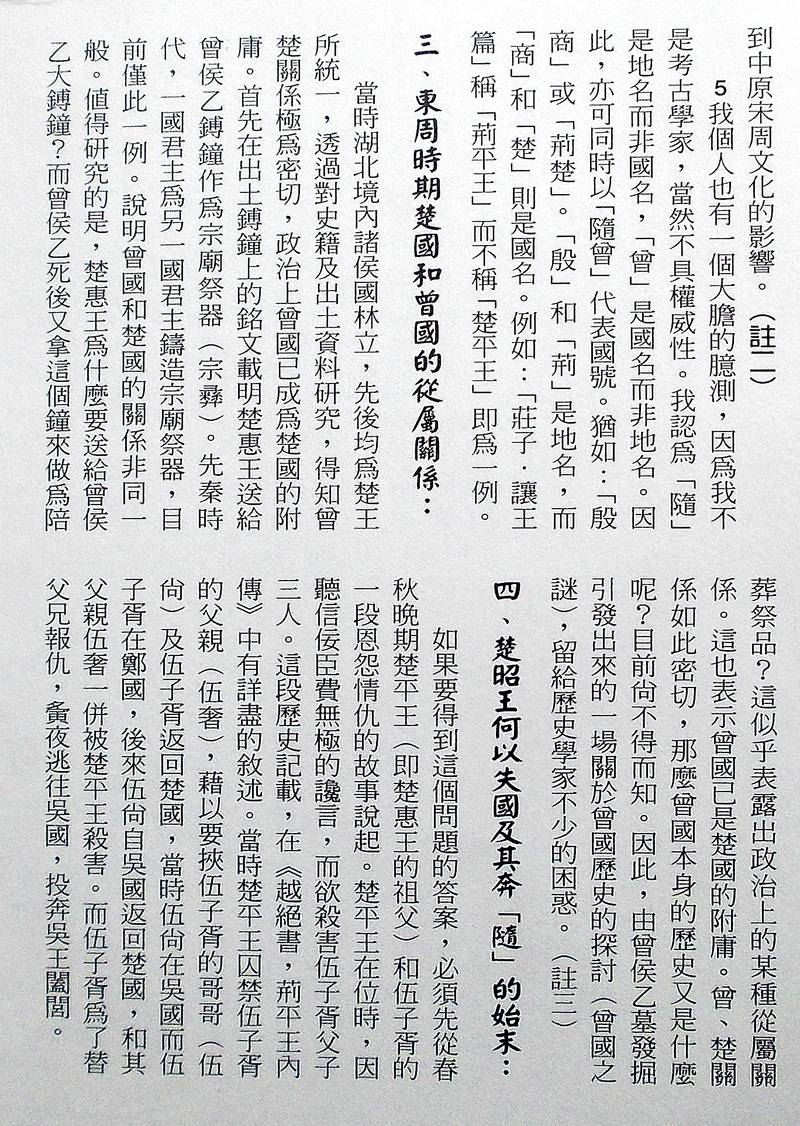 到中原宋周文化的影響。（註二）
5我個人也有一個大膽的臆測，因爲我不
是考古學家，當然不具權威性。我認爲「隨」
是地名而非國名，「曾」是國名而非地名。因
此，亦可同時以「隨曾」代表國號。猶如：「殷
商」或「荊楚」。「殷」和「荊」是地名，而
「商」和「楚」則是國名。例如：「莊子．讓王
篇」稱「荊平王」而不稱「楚平王」即爲一例。
三、東周時期楚國和曾國的從屬關係：
當時湖北境內諸侯國林立，先後均爲楚王
所統一，透過對史籍及出土資料研究，得知曾
楚關係極爲密切，政治上曾國已成爲楚國的附
庸。首先在出土鎛鐘上的銘文載明楚惠王送給
曾侯乙鎛鐘作爲宗廟祭器（宗彝）。先秦時
代，一國君主爲另一國君主鑄造宗廟祭器，目
前僅此一例。說明曾國和楚國的關係非同一
般。值得研究的是，楚惠王爲什麼要送給曾侯
乙大鎛鐘？而曾侯乙死後又拿這個鐘來做爲陪
葬祭品？這似乎表露出政治上的某種從屬關
係。這也表示曾國已是楚國的附庸。曾、楚關
係如此密切，那麼曾國本身的歷史又是什麼
呢？目前尚不得而知。因此，由曾侯乙墓發掘
引發出來的一場關於曾國歷史的探討（曾國之
謎），留給歷史學家不少的困惑。（註三）
四、楚昭王何以失國及其奔「隨」的始末：
如果要得到這個問題的答案，必須先從春
秋晚期楚平王（即楚惠王的祖父）和伍子胥的
一段恩怨情仇的故事說起。楚平王在位時，因
聽信佞臣費無極的讒言，而欲殺害伍子胥父子
三人。這段歷史記載，在《越絕書，荊平王內
傳》中有詳盡的敘述。當時楚平王囚禁伍子胥
的父親（伍奢），藉以要挾伍子胥的哥哥（伍
尚）及伍子胥返回楚國，當時伍尚在吳國而伍
子胥在鄭國，後來伍尚自吳國返回楚國，和其
父親伍奢一併被楚平王殺害。而伍子胥爲了替
父兄報仇，夤夜逃往吳國，投奔吳王闔閭。